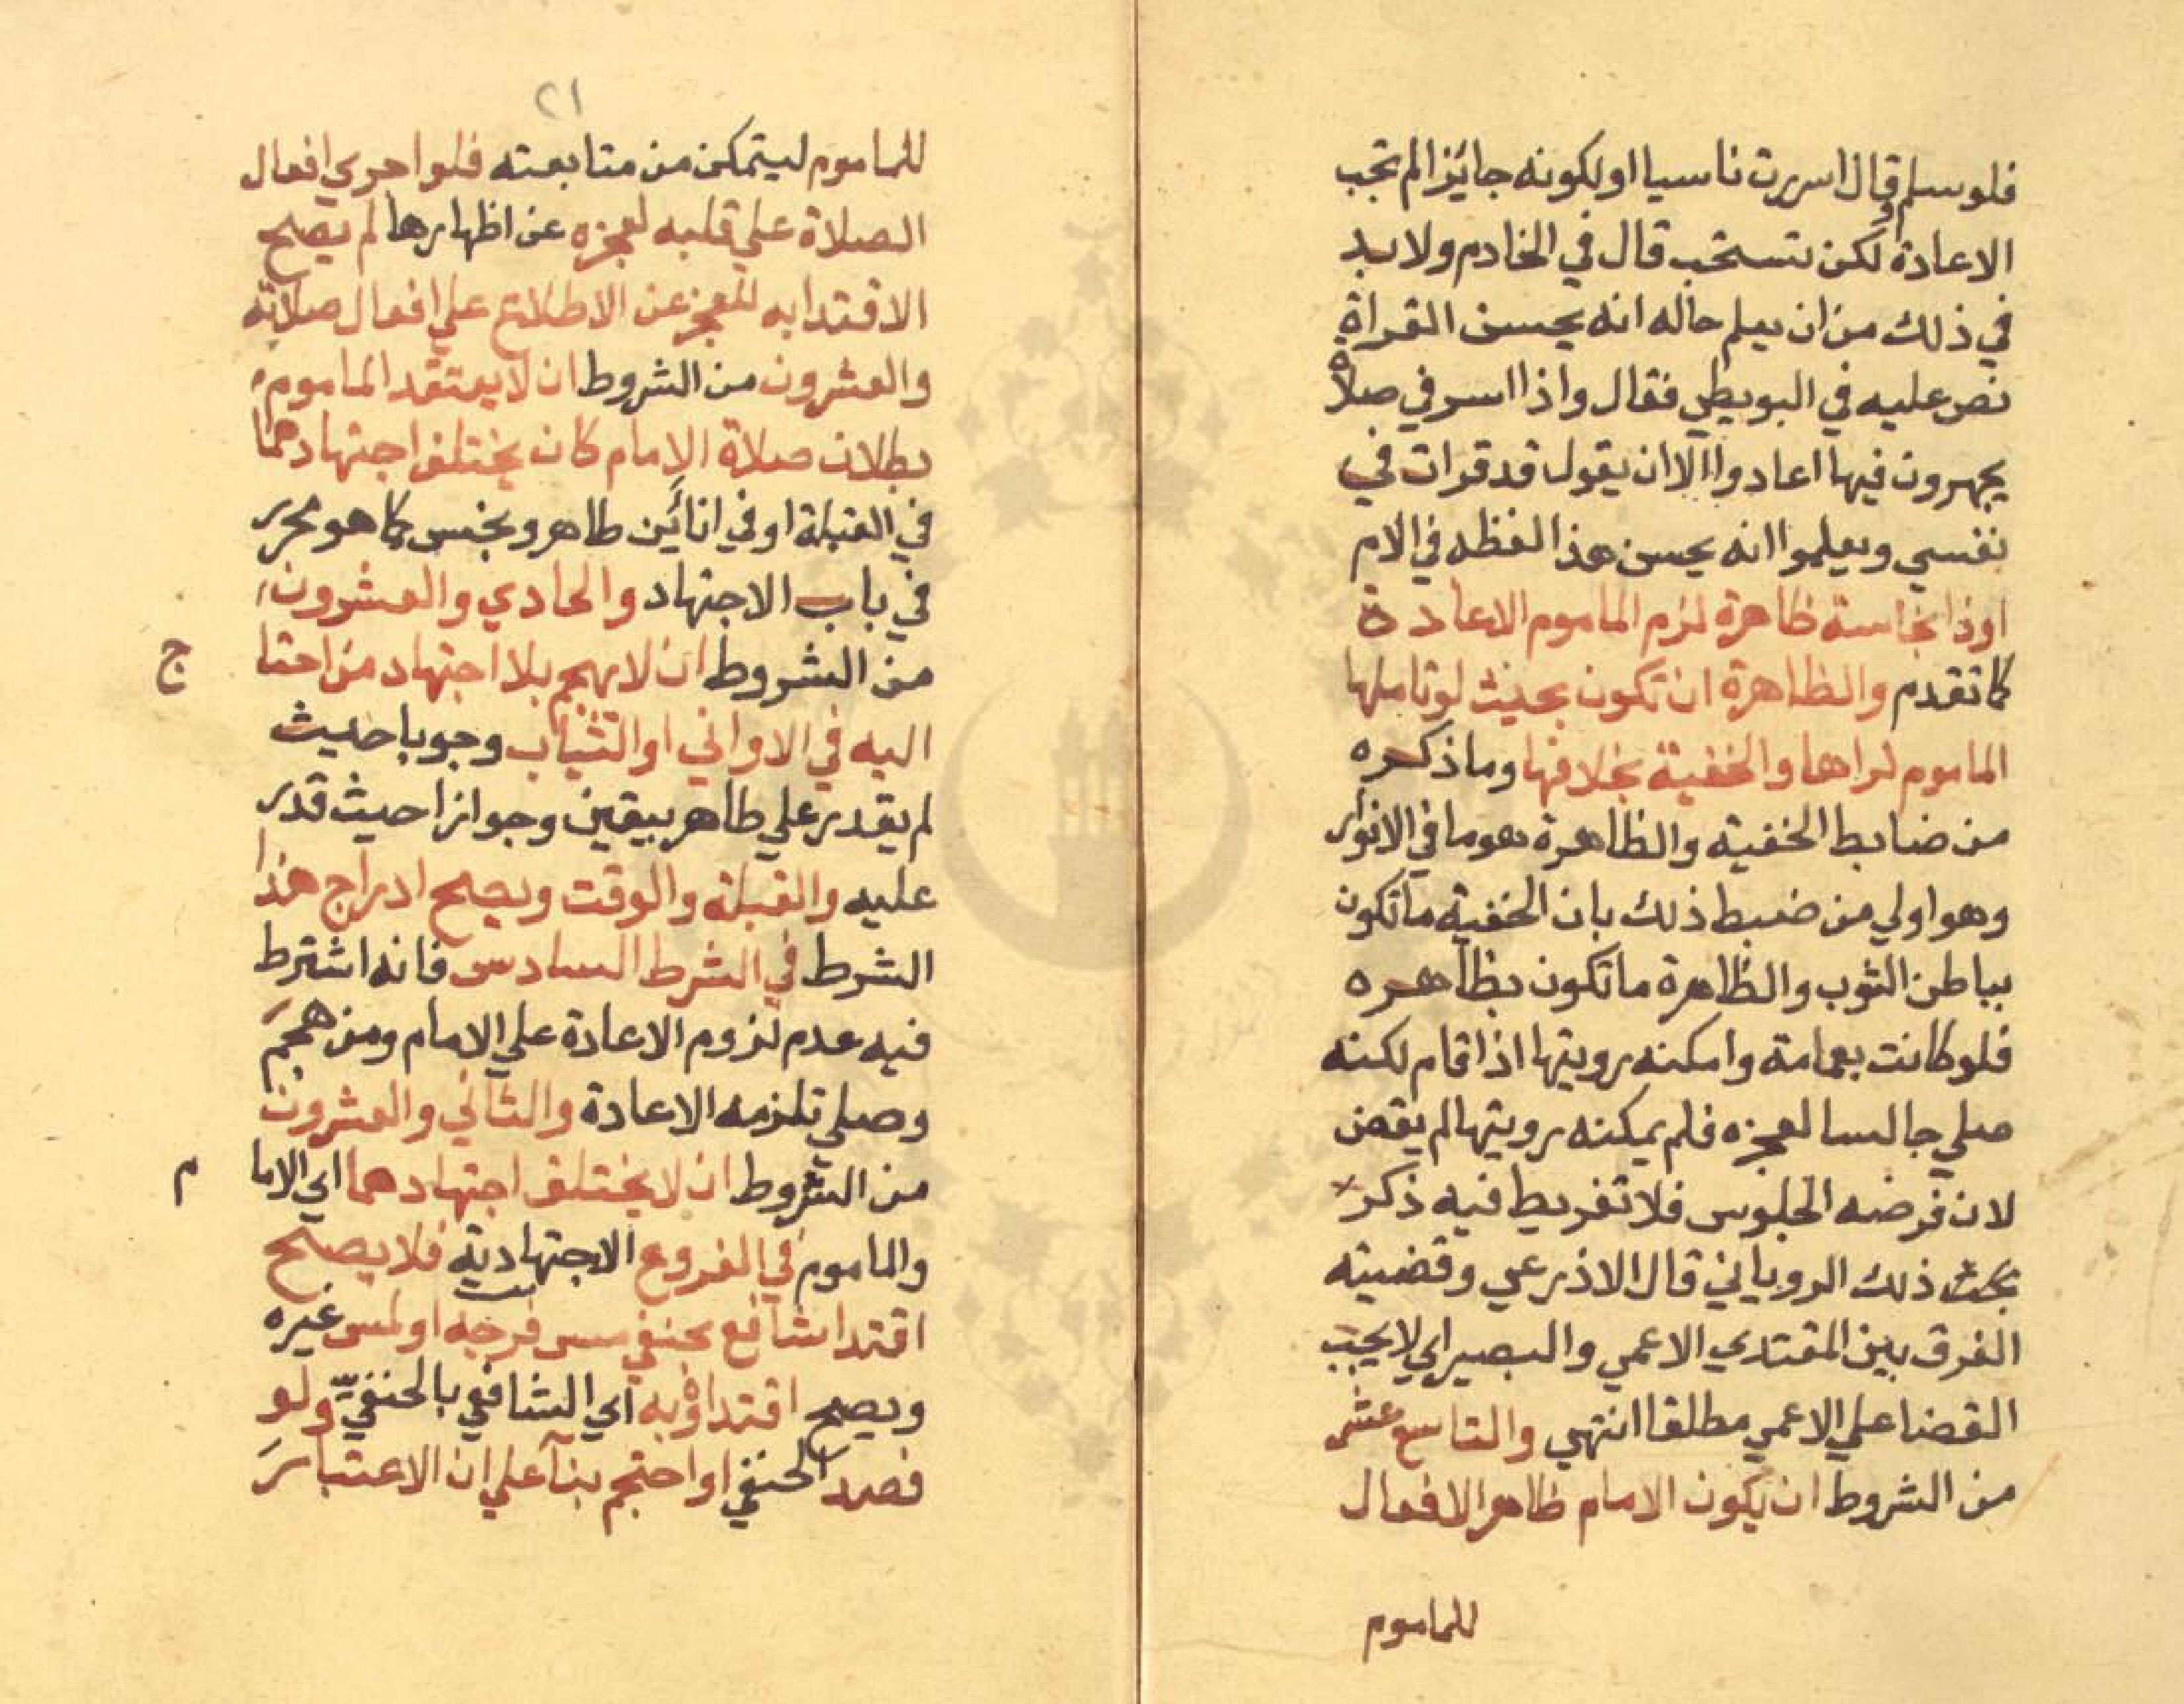 فلو سلم وقال اسررت ناسيا او لكونه جائيزا لم تجب
الاعادة لكن تستحب قال في الخادم ولا بد
في ذلك من ان يعلم حاله انه يحسن القراة
نص عليه في البويطي فقال واذا اسر في صلاة
يجهرون فيها اعادوا الا ان يقول قد قرات في
نفسي ويعلموا انه يحسن هذا لفظه في الام
اوذا نجاسة ظاهرة لزم الماموم الاعادة
كما تقدم والظاهرة ان تكون بحيث لو تاملها
الماموم لراها والخفية بخلافها وما ذكره
من ضابط الخفية والظاهرة هو ما في الانوار
وهو اولي من ضبط ذلك بان الخفية ما تكون
بباطن الثوب والظاهرة ما تكون بظاهره
فلو كانت بعمامة وامكنه رويتها اذا قام لكنه
صلي جالسا لعجزه فلم يمكنه رويتها لم يقض
لان فرضه الجلوس فلا تفريط فيه ذكر
بحث ذلك الروياني قال الاذرعي وقضيته
الفرق بين المقتدي الاعمي والبصير اي لا يجب
القضا علي الاعمي مطلقا انتهي والتاسع عشر
من الشروط ان يكون الامام ظاهر الافعال
للماموم
٢١
للماموم ليتمكن من متابعته فلو اجري افعال
الصلاة علي قلبه لعجزه عن اظهارها لم يصح
الاقتدا به للعجز عن الاطلاع علي افعال صلاته
والعشرون من الشروط ان لا يعتقد الماموم
بطلان صلاة الامام كان يختلف اجتهادهما
في القبلة او في انائين طاهر ونجس كما هو محرر
في باب الاجتهاد والحادي والعشرون
من الشروط ان لا يهجم بلا اجتهاد من احتا
ج
اليه في الاواني او الثياب وجوبا حيث
لم يقدر علي طاهر بيقين وجوازا حيث قدر
عليه والقبلة والوقت ويصح ادراج هذا
الشرط في الشرط السادس فانه اشترط
فيه عدم لزوم الاعادة علي الامام ومن هجم
وصلي تلزمه الاعادة والثاني والعشرون
من الشروط ان لا يختلف اجتهادهما اي الاما
م
والماموم في الفروع الاجتهادية فلا يصح
اقتدا شافع بحنفي مس فرجه او لمس غيره
ويصح اقتداؤه به اي الشافعي بالحنفي ولو
فصد الحنفي او احتجم بنآ علي ان الاعتبار